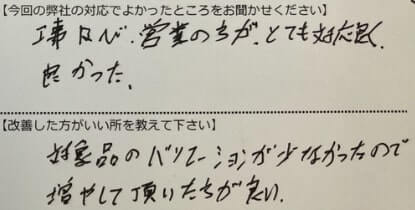 【今回の弊社の対応でよかったところをお聞かせください】
工事及び、営業の方が、とても対応良く、
良かった、
【改善した方がいい所を教えて下さい】
対象品のバリエーションが少なかったので
増やして頂いた方が良い。